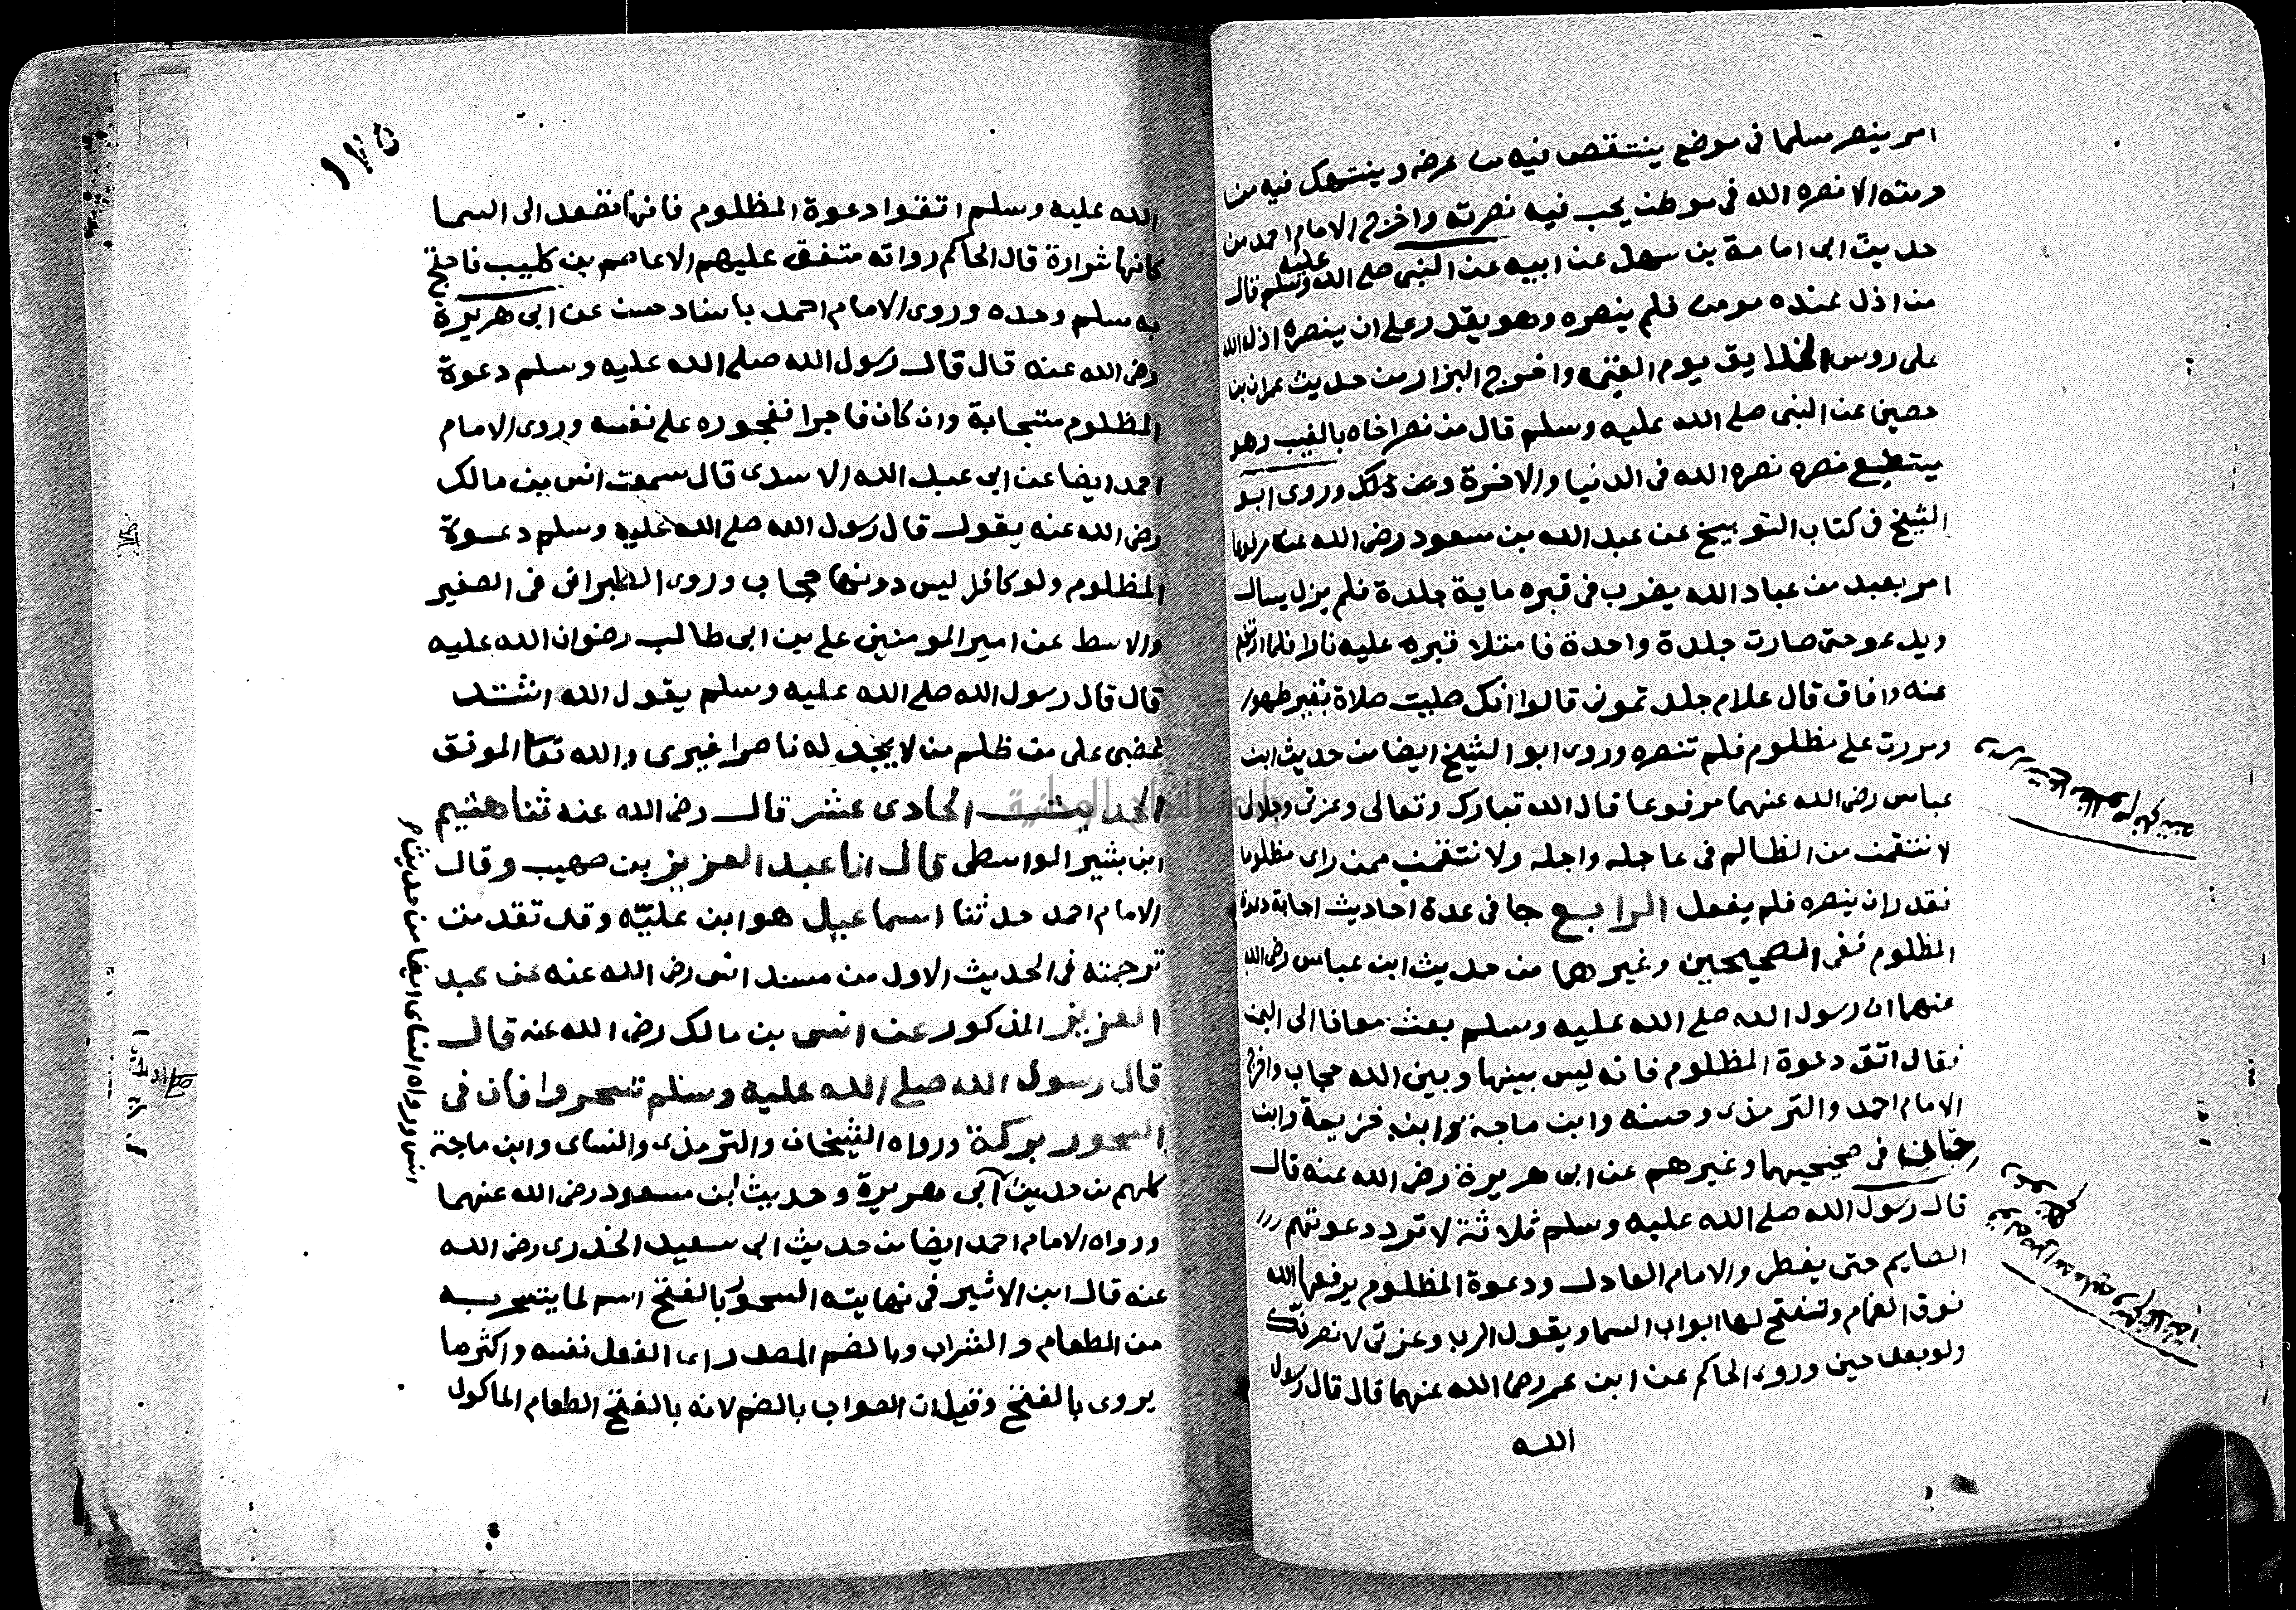 امر ينصر مسلما فى موضع ينتقص فيه من عرضه وينتهك فيه من
حرمته الا نصره الله فى موطن يحب فيه نصرته واخرج الامام احمد من
حديث ابى امامة بن سهل عن ابيه عن النبى صلى الله عليه وسلم قال
من اذل عنده مومن فلم ينصره وهو يقدر على ان ينصره اذله الله
على روس الخلايق يوم القيمة واخرج البزار من حديث عمران بن
حصين عن النبى صلى الله عليه وسلم قال من نصر اخاه بالغيب وهو
يستطيع نصره نصره الله فى الدنيا والاخرة وعن ذلك وروى ابو
الشيخ فى كتاب التوبيخ عن عبد الله بن مسعود رضى الله عنه مرفوعا
امر بعبد من عباد الله يضرب فى قبره ماية جلدة فلم يزل يسال
ويدعو حتى صارت جلدة واحدة فامتلا قبره عليه نارا فلما ارتفع
عنه وافاق قال علام جلدتمونى قالوا انك صليت صلاة بغير طهور
ومررت على مظلوم فلم تنصره وروى ابو الشيخ ايضا من حديث ابن
عباس رضى الله عنهما مرفوعا قال الله تبارك وتعالى وعزتى وجلالى
لانتقمن من الظالم فى عاجله واجله ولانتقمن ممن راى مظلوما
فقدر ان ينصره فلم يفعل الرابع جا فى عدة احاديث اجابة دعوة
المظلوم ففى الصحيحين وغيرهما من حديث ابن عباس رضى الله
عنهما ان رسول الله صلى الله عليه وسلم بعث معاذا الى اليمن
فقال اتق دعوة المظلوم فانه ليس بينها وبين الله حجاب واخرج
الامام احمد والترمذى وحسنه وابن ماجة وابن خزيمة وابن
حبان فى صحيحيهما وغيرهم عن ابى هريرة رضى الله عنه قال
قال رسول الله صلى الله عليه وسلم ثلاثة لا ترد دعوتهم
الصايم حتى يفطر والامام العادل ودعوة المظلوم يرفعها الله
فوق الغمام وتفتح لها ابواب السما ويقول الرب وعزتى لانصرنك
ولو بعد حين وروى الحاكم عن ابن عمر رضى الله عنهما قال قال رسول
الله
١١٧٥
الله عليه وسلم اتقوا دعوة المظلوم فانها تصعد الى السما
كانها شرارة قال الحاكم رواته متفق عليهم الا عاصم بن كليب فاحتج
به مسلم وحده وروى الامام احمد باسناد حسن عن ابى هريرة
رضى الله عنه قال قال رسول الله صلى الله عليه وسلم دعوة
المظلوم مستجابة وان كان فاجرا ففجوره على نفسه وروى الامام
احمد ايضا عن ابى عبد الله الاسدى قال سمعت انس بن مالك
رضى الله عنه يقول قال رسول الله صلى الله عليه وسلم دعوة
المظلوم ولو كافرا ليس دونها حجاب وروى الطبرانى فى الصغير
والاوسط عن امير المومنين على بن ابى طالب رضوان الله عليه
قال قال رسول الله صلى الله عليه وسلم يقول الله اشتد
غضبى على من ظلم من لا يجد له ناصرا غيرى والله تعا الموفق
الحديث الحادى عشر قال رضى الله عنه ثنا هشيم
ابن بشير الواسطى قال انا عبد العزيز بن صهيب وقال
الامام احمد حدثنا اسماعيل هو ابن علية وقد تقدمت
ترجمته فى الحديث الاول من مسند انس رضى الله عنه عن عبد
العزيز المذكور عن انس بن مالك رضى الله عنه قال
قال رسول الله صلى الله عليه وسلم تسحروا فان فى
السحور بركة ورواه الشيخان والترمذى والنساى وابن ماجة
كلهم من حديث ابى هريرة وحديث ابن مسعود رضى الله عنهما
ورواه الامام احمد ايضا من حديث ابى سعيد الخدرى رضى الله
عنه قال ابن الاثير فى نهايته السحور بالفتح اسم لما يتسحر به
من الطعام والشراب وبالضم المصدر اى الفعل نفسه واكثر ما
يروى بالفتح وقيل ان الصواب بالضم لانه بالفتح الطعام الماكول
انس ورواه النساى ايضا من حديث